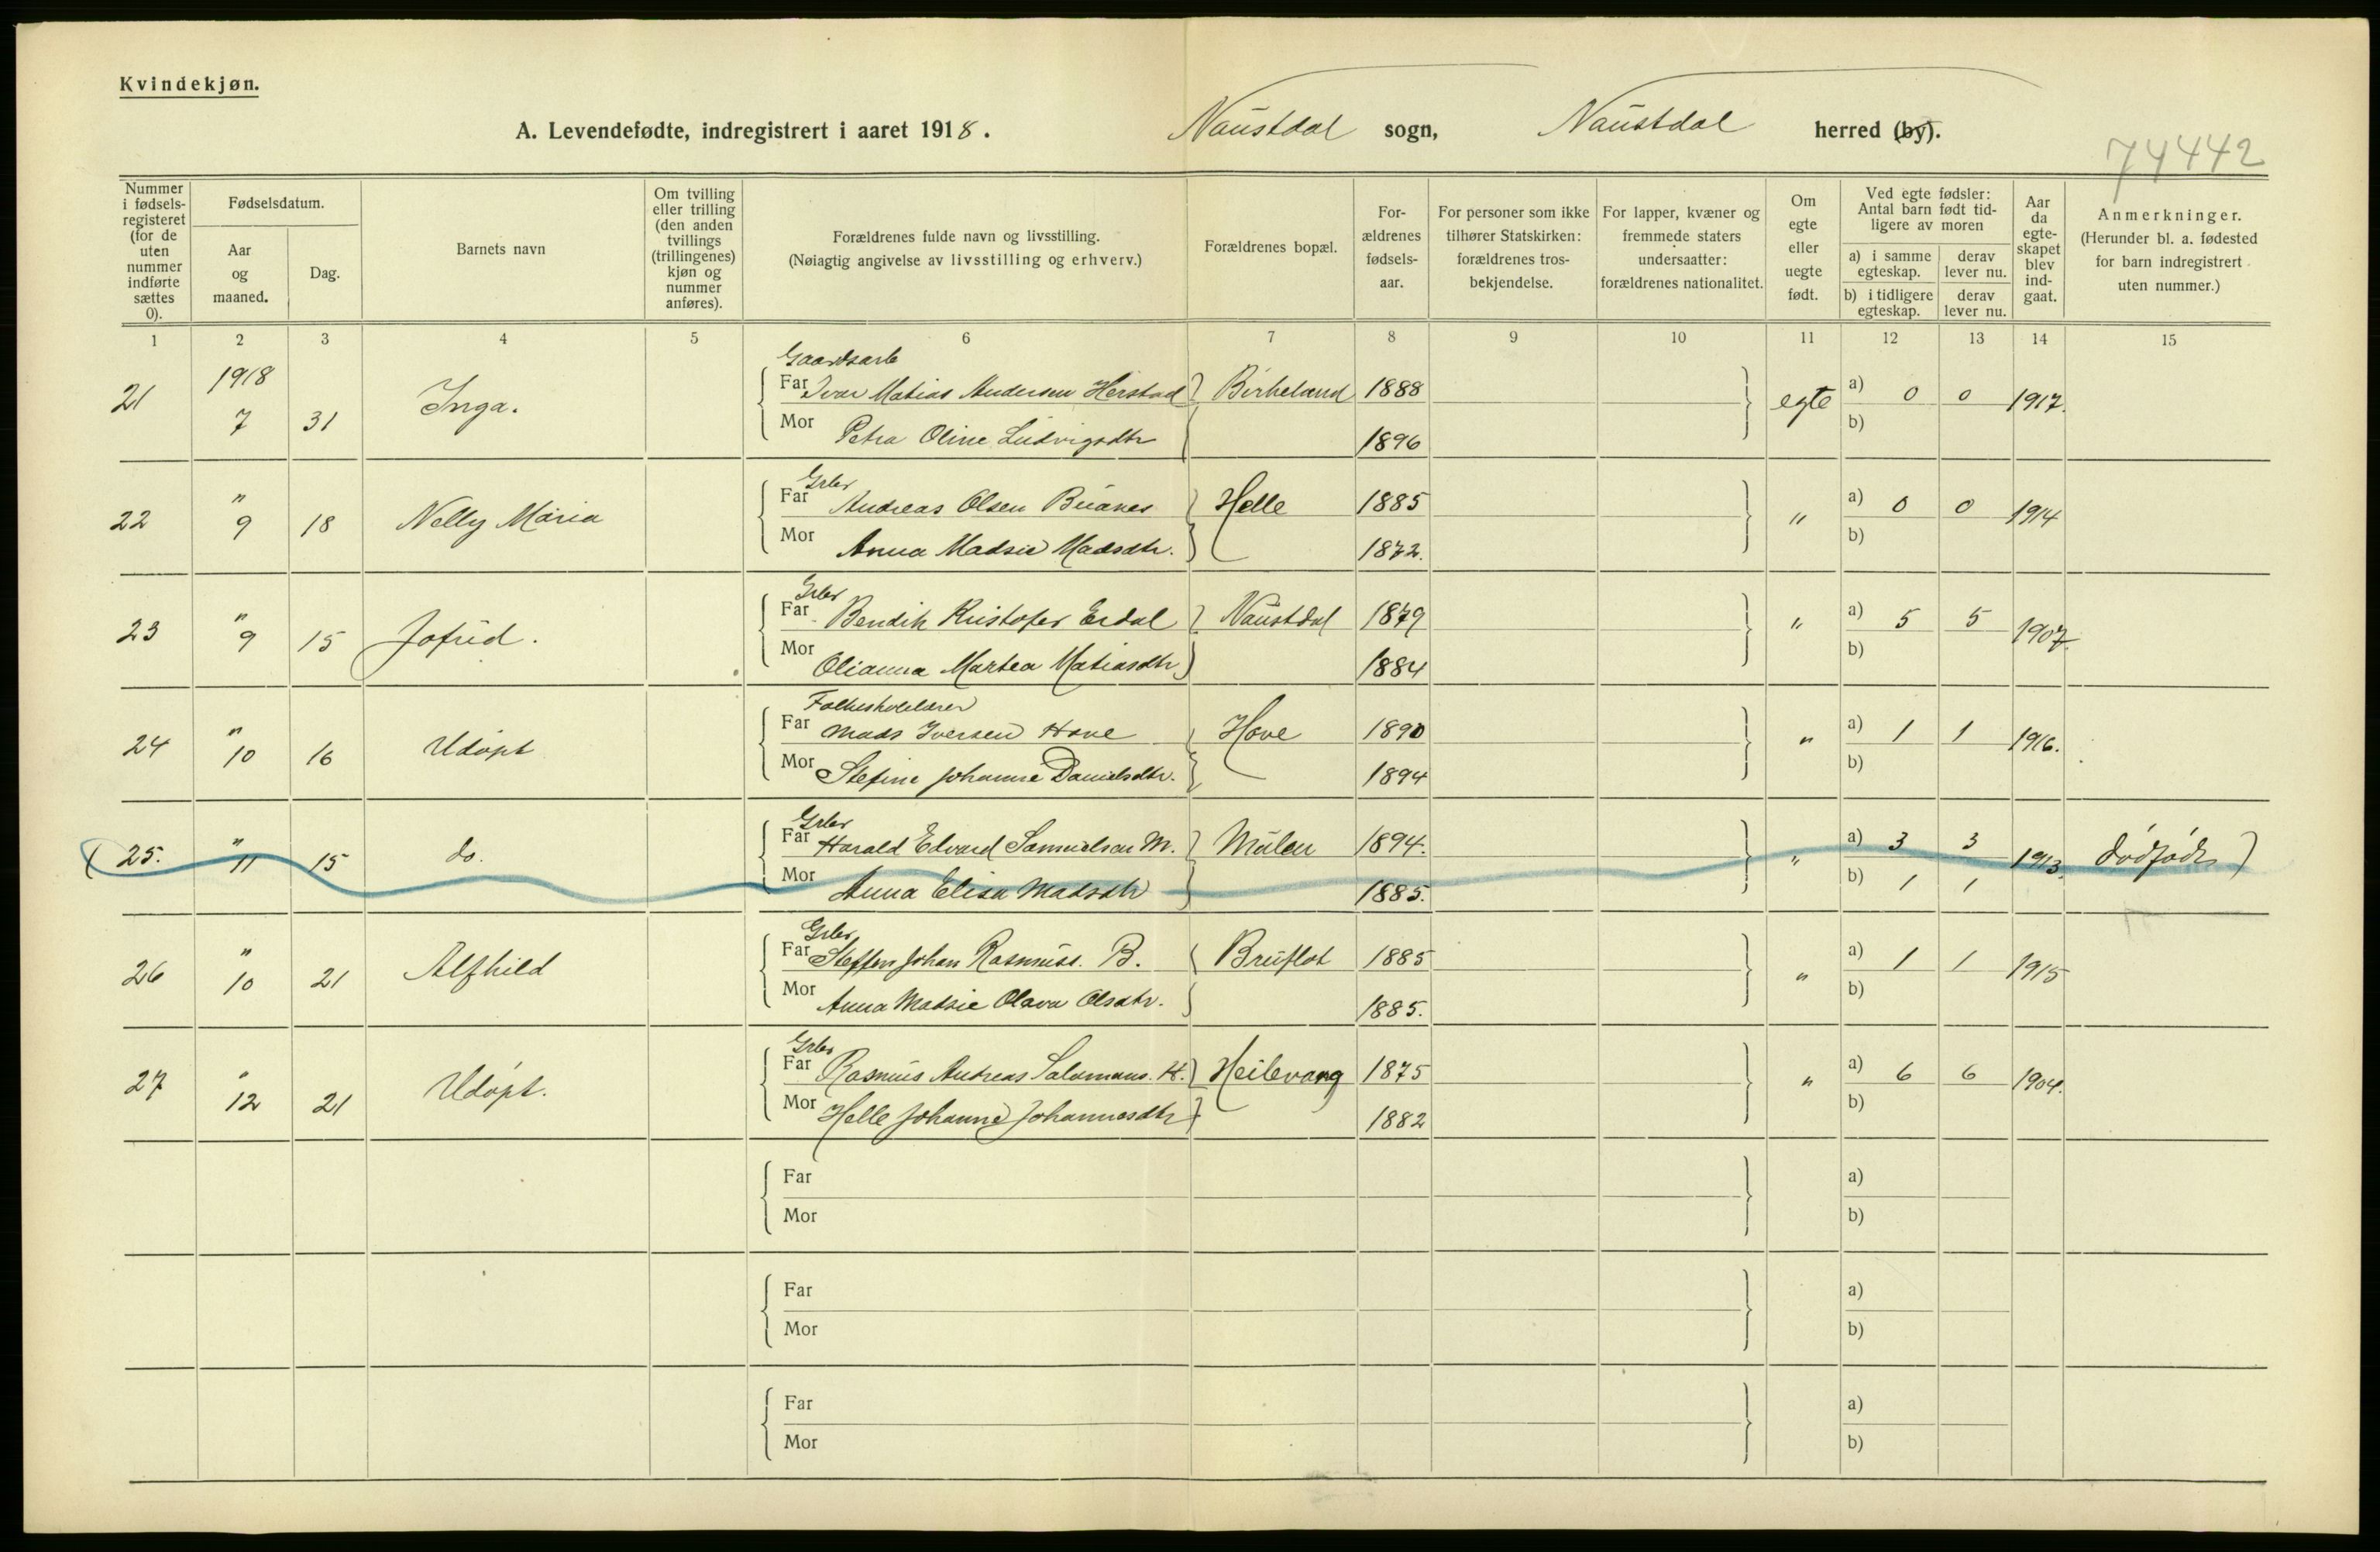 Kvindekjøn.
A. Levendefødte, indregistrert i aaret 1918. Naustdal sogn, Naustdal herred (by).
74442
Nummer i fødselsregisteret (for de uten nummer indførte sættes 0).
Fødselsdatum.
Aar og maaned.
Dag.
Barnets navn
Om tvilling eller trilling (den anden tvillings (trillingenes) kjøn og nummer anføres).
Forældrenes fulde navn og livsstilling.
(Nøiagtig angivelse av livsstilling og erhverv.)
Forældrenes bopæl.
Forældrenes fødselsaar.
For personer som ikke tilhører Statskirken: forældrenes trosbekjendelse.
For lapper, kvæner og fremmede staters undersaatter: forældrenes nationalitet.
Om egte eller uegte født.
Ved egte fødsler: Antal barn født tidligere av moren
a) i samme egteskap.
derav lever nu.
b) i tidligere egteskap.
derav lever nu.
Aar da egteskapet blev indgaat.
Anmerkninger.
(Herunder bl. a. fødested for barn indregistrert uten nummer.)
1 2 3 4 5 6 7 8 9 10 11 12 13 14 15
1918
Gaardsarb
21 7 31 Inga. Far Ivar Matias Andersen Herstad Birkeland 1888 egte a) 0 0 1917.
Mor Petra Oline Ludvigsdtr 1896 b)
Grbr
22 " 9 18 Nelly Maria Far Andreas Olsen Buanes Helle 1885 " a) 0 0 1914
Mor Anna Madsie Madsdtr. 1872. b)
Grbr
23 " 9 15 Jofrid. Far Bendik Kristofer Erdal Naustdal 1879 " a) 5 5 1907.
Mor Olianna Martea Matiasdtr 1884 b)
Folkeskolelærer
24 " 10 16 Udøpt Far Mads Iversen Hove Hove 1890 " a) 1 1 1916.
Mor Stefine Johanne Danielsdtr. 1894 b)
Grbr
(25. " 11 15 do. Far Harald Edvard Samuelsen M. Mulen 1894. " a) 3 3 1913. dødfødt)
Mor Anna Elisa Madsdtr 1885. b) 1 1
Grbr
26 " 10 21 Alfhild Far Steffen Johan Rasmuss. B. Bruflot 1885 " a) 1 1 1915
Mor Anna Madsie Olava Olsdtr. 1885. b)
Grbr
27 " 12 21 Udøpt. Far Rasmus Andreas Salomons. H. Heilevang 1875 " a) 6 6 1904.
Mor Helle Johanne Johannesdtr 1882 b)
Far a)
Mor b)
Far a)
Mor b)
Far a)
Mor b)